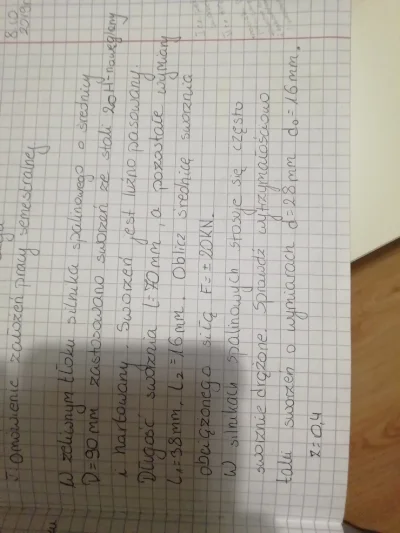 8.10
2019
Omówienie założeń pracy semestralnej
W żeliwnym tłoku silnika spalinowego o średnicy
D=90mm zastosowano sworzeń ze stali 20H-nawęglany
i hartowany. Sworzeń jest luźno pasowany.
Długość sworznia l=70mm, a pozostałe wymiary
l₁=38mm, l₂=16mm. Oblicz średnicę sworznia
obciążonego siłą F=±20KN.
W silnikach spalinowych stosuje się często
sworznie drążone. Sprawdź wytrzymałościowo
taki sworzeń o wymiarach d=28mm d₀=16mm.
z=0,4